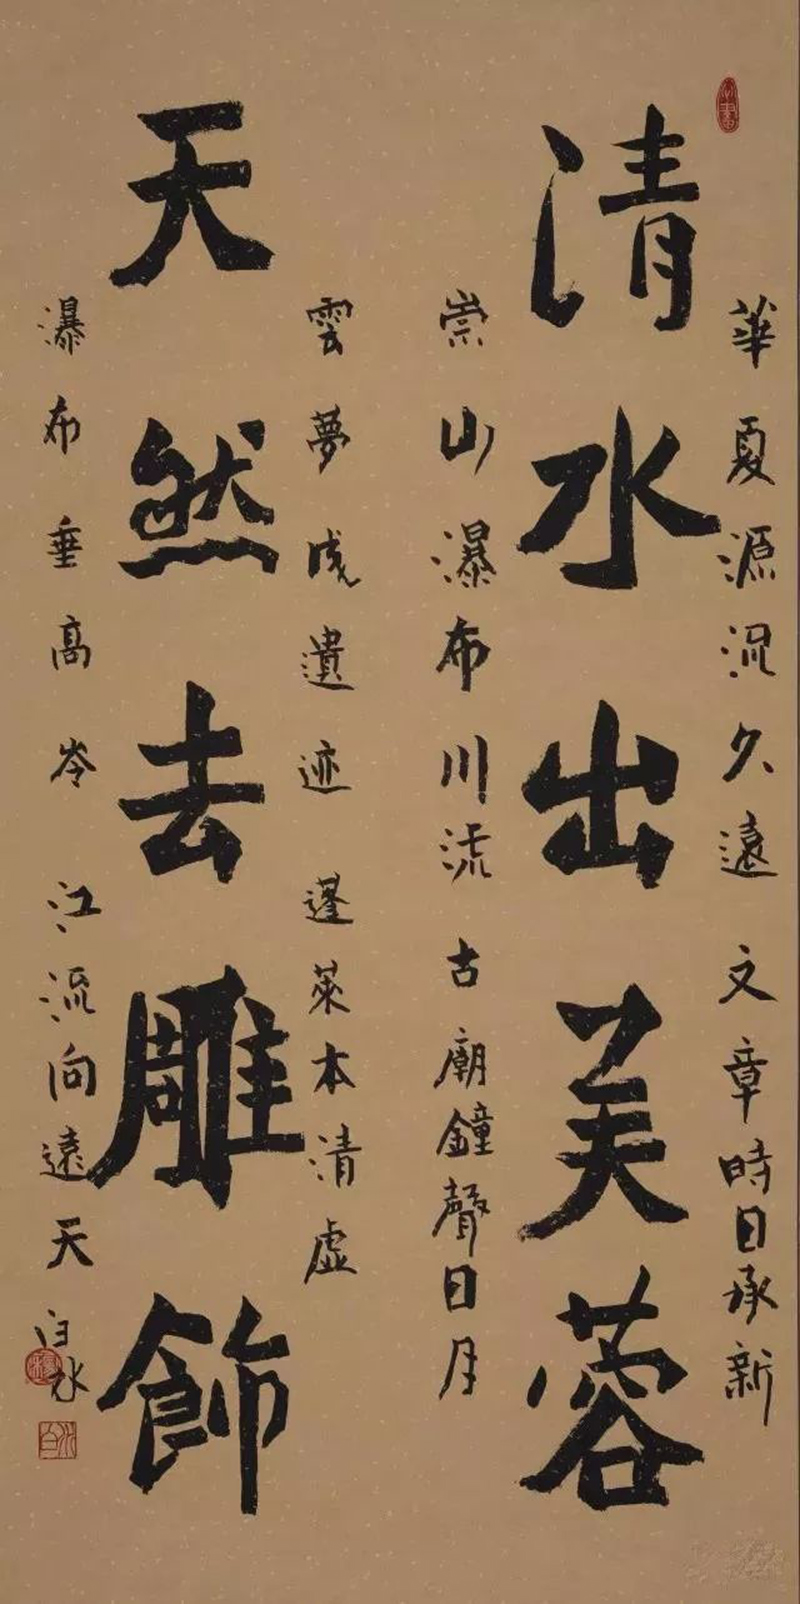 華夏源流久遠 文章時日承新
清水出芙蓉
崇山瀑布川流 古廟鐘聲日月
雲夢成遺迹 蓬萊本清虛
天然去雕飾
瀑布垂高岑 江流向遠天